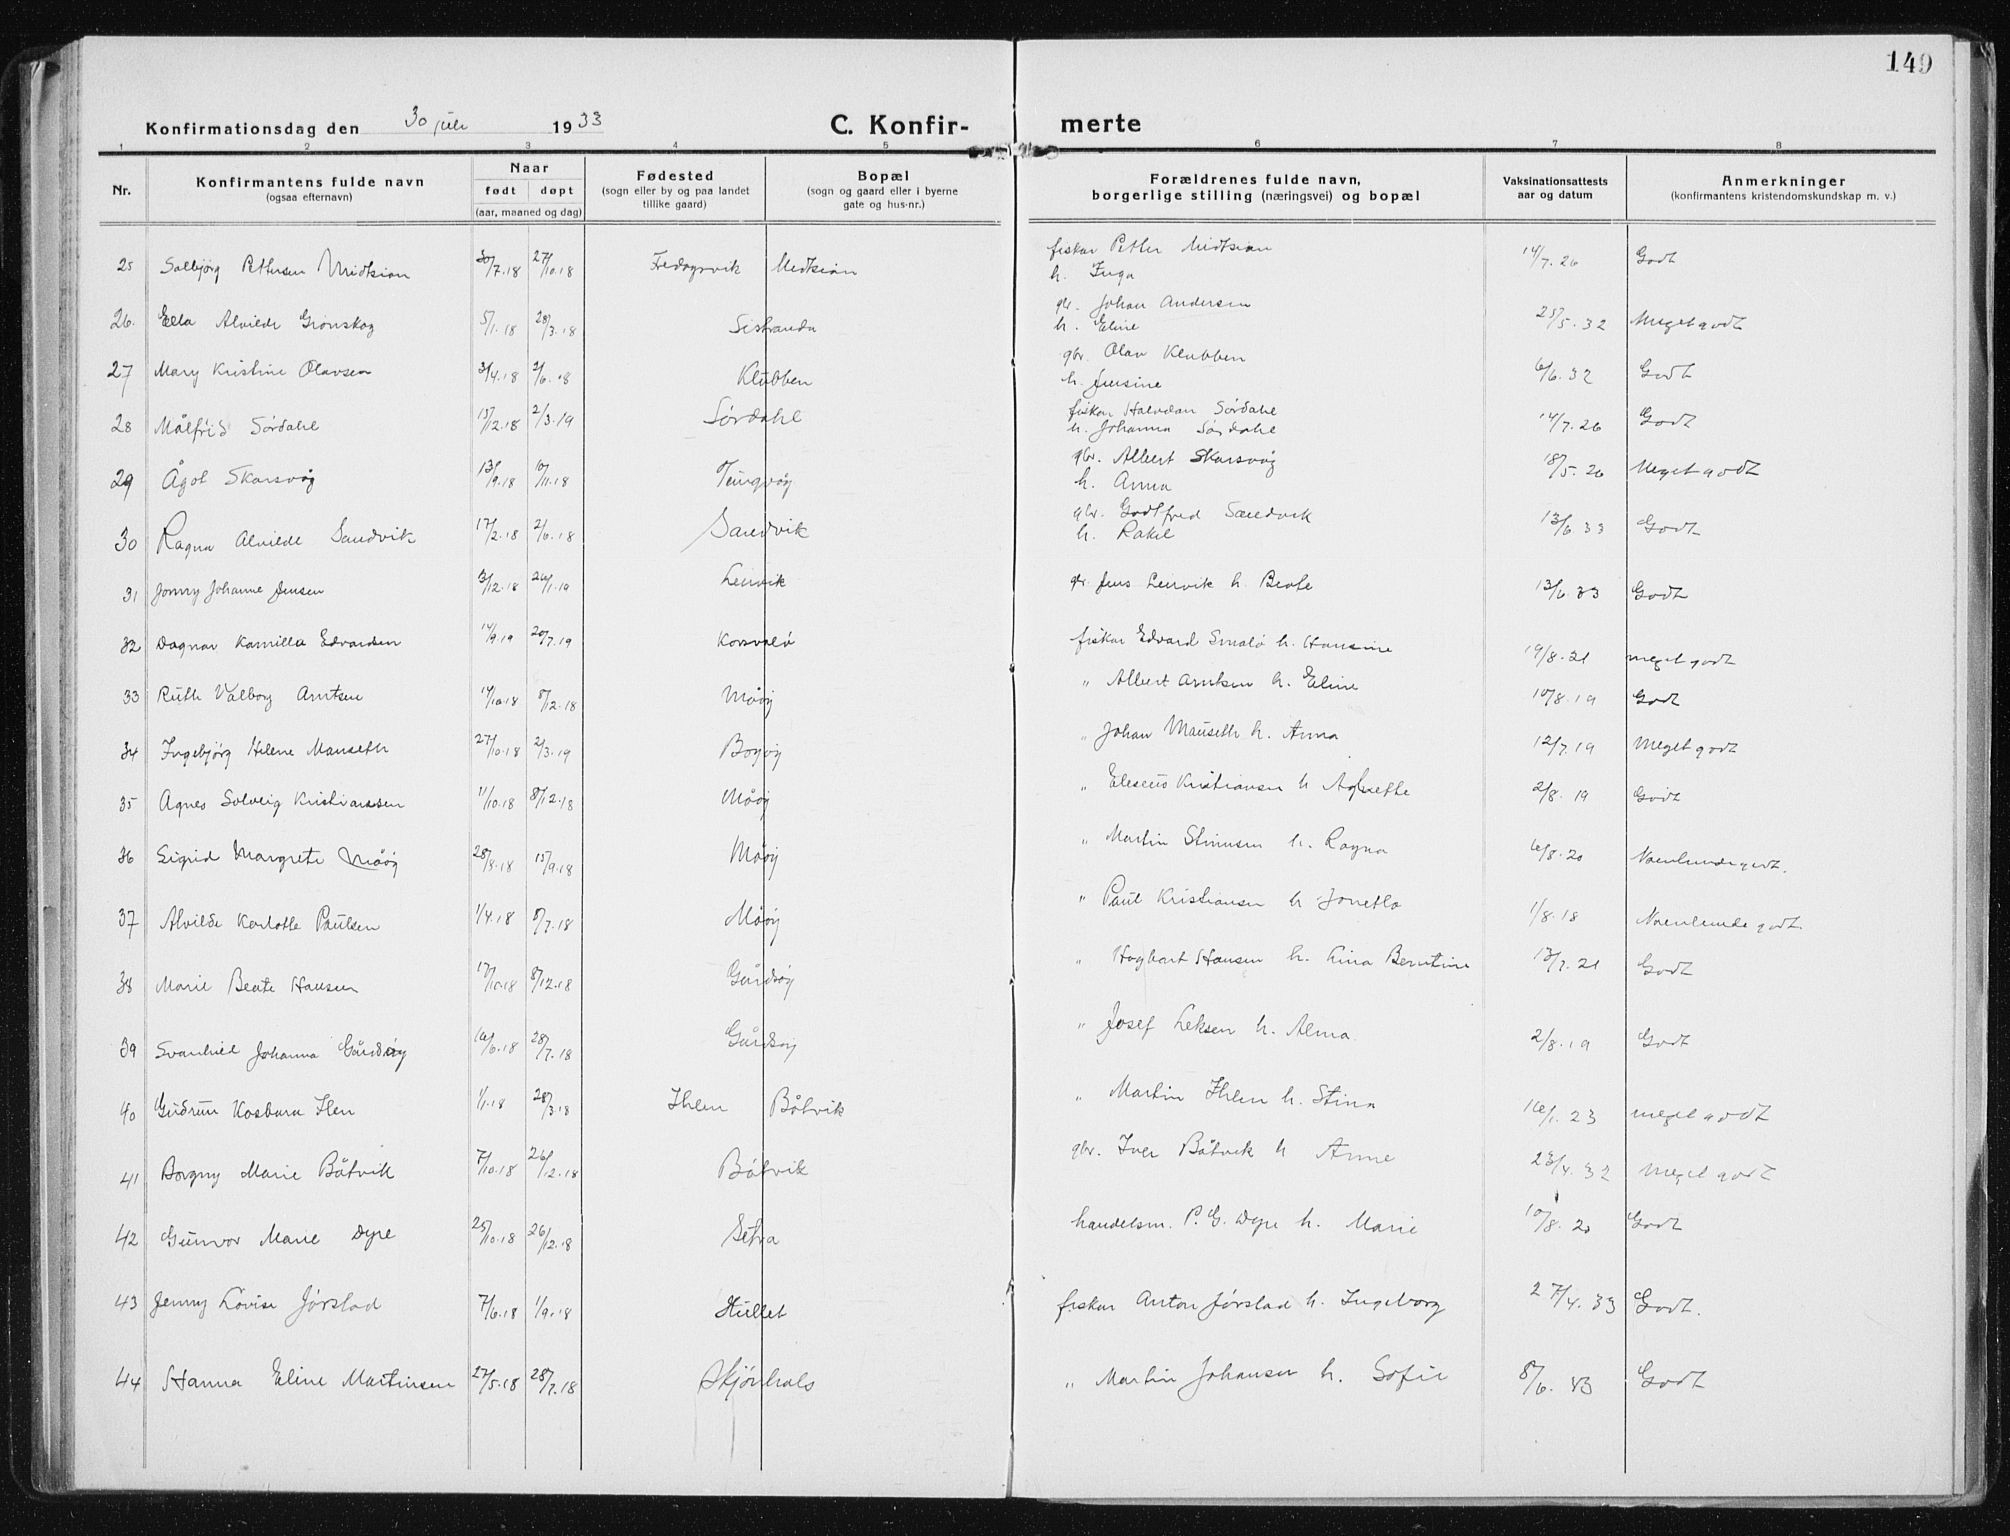 149
Konfirmationsdag den 30 juli 1933 C. Konfir- merte
1 2 3 4 5 6 7 8
Nr. Konfirmantens fulde navn (ogsaa efternavn) Naar født døpt (aar, maaned og dag) Fødested (sogn eller by og paa landet tillike gaard) Bopæl (sogn og gaard eller i byerne gate og hus-nr.) Forældrenes fulde navn, borgerlige stilling (næringsvei) og bopæl Vaksinationsattests aar og datum Anmerkninger (konfirmantens kristendomskundskap m. v.)
25 Solbjørg Pettersen Midtsian 30/7.18 27/10.18 Fredagsvik Medtsian fiskar Petter Midtsian h. Inga 14/7.26 Godt
26. Ella Alvilde Grønskag 5/1.18 28/3.18 Sistranda gbr. Johan Andersen h. Eline 25/5.32 Meget godt
27 Mary Kristine Olavsen 3/4.18 2/6.18 Klubben gbr. Olav Klubben h. Jensine 6/6.32 Godt
28 Målfrid Sørdahl 15/12.18 2/3.19 Sørdahl fiskar Halvdan Sørdahl h. Johanna Sørdahl 14/7.26 Godt
29 Ågot Skarsvåg 13/9.18 10/11.18 Tungvåg gbr. Albert Skarsvåg h. Anna 18/5.20 Meget godt
30 Ragna Alvilde Sandvik 17/2.18 2/6.18 Sandvik gbr. Godtfred Sandvik h. Rakel 13/6.33 Godt
31 Jonny Johanne Jensen 3/12.18 26/1.19 Leirvik gbr. Jens Leirvik h. Beate 13/6.33 Godt
32 Dagnar Kamilla Edvardsen 14/9.19 20/7.19 Korsvalø fiskar Edvard Smalø h. Hansine 19/8.21 meget godt
33 Ruth Valborg Arntsen 14/10.18 8/12.18 Måøy " Albert Arntsen h. Eline 10/8.19 Godt
34 Ingebjørg Helene Mauseth 27/10.18 2/3.19 Bogøy " Johan Mauseth h. Anna 12/7.19 Meget godt
35 Agnes Solveig Kristiansen 11/10.18 8/12.18 Måøy " Eleseus Kristiansen h Agnethe 2/8.19 Godt
36 Sigrid Margrete Måøy 28/8.18 15/9.18 Måøy " Martin Simensen h. Ragna 6/8.20 Noenlunde godt.
37 Alvilde Karlotte Paulsen 1/4.18 8/7.18 Måøy " Paul Kristiansen h Jonetta 1/8.18 Noenlunde godt.
38 Marie Beate Hansen 17/10.18 8/12.18 Gårdsøy " Hagbart Hansen h. Lina Berntine 13/7.21 Godt
39 Svanhild Johanna Gårdsøy 16/6.18 28/7.18 Gårdsøy " Josef Leksen h. Alma 2/8.19 Godt
40 Gudrun Kosbara Ilen 1/1.18 28/3.18 Ihlen Båtvik " Martin Ihlen h. Stina 16/1.23 meget godt
41 Borgny Marie Båtvik 7/10.18 26/12.18 Båtvik gbr. Iver Båtvik h Anne 23/4.32 Meget godt
42 Gunvor Marie Dyre 25/10.18 26/12.18 Setra handelsm. P. G. Dyre h. Marie 10/8.20 Godt
43 Jenny Lovise Jørstad 7/6.18 1/9.18 Hullet fiskar Anton Jørstad h. Ingeborg 27/4.33 Godt.
44 Hanna Eline Martinsen 27/5.18 28/7.18 Skjønhals " Martin Johansen h. Sofie 8/6.33 Godt